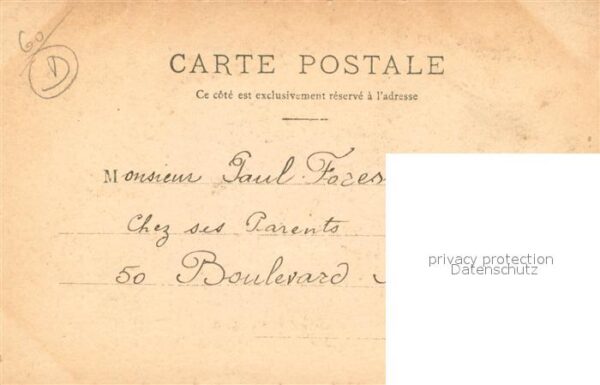 60
D
CARTE POSTALE
Ce côté est exclusivement réservé à l'adresse
Monsieur Paul
Chez ses Parents
50 Boulevard
privacy protection
Datenschutz